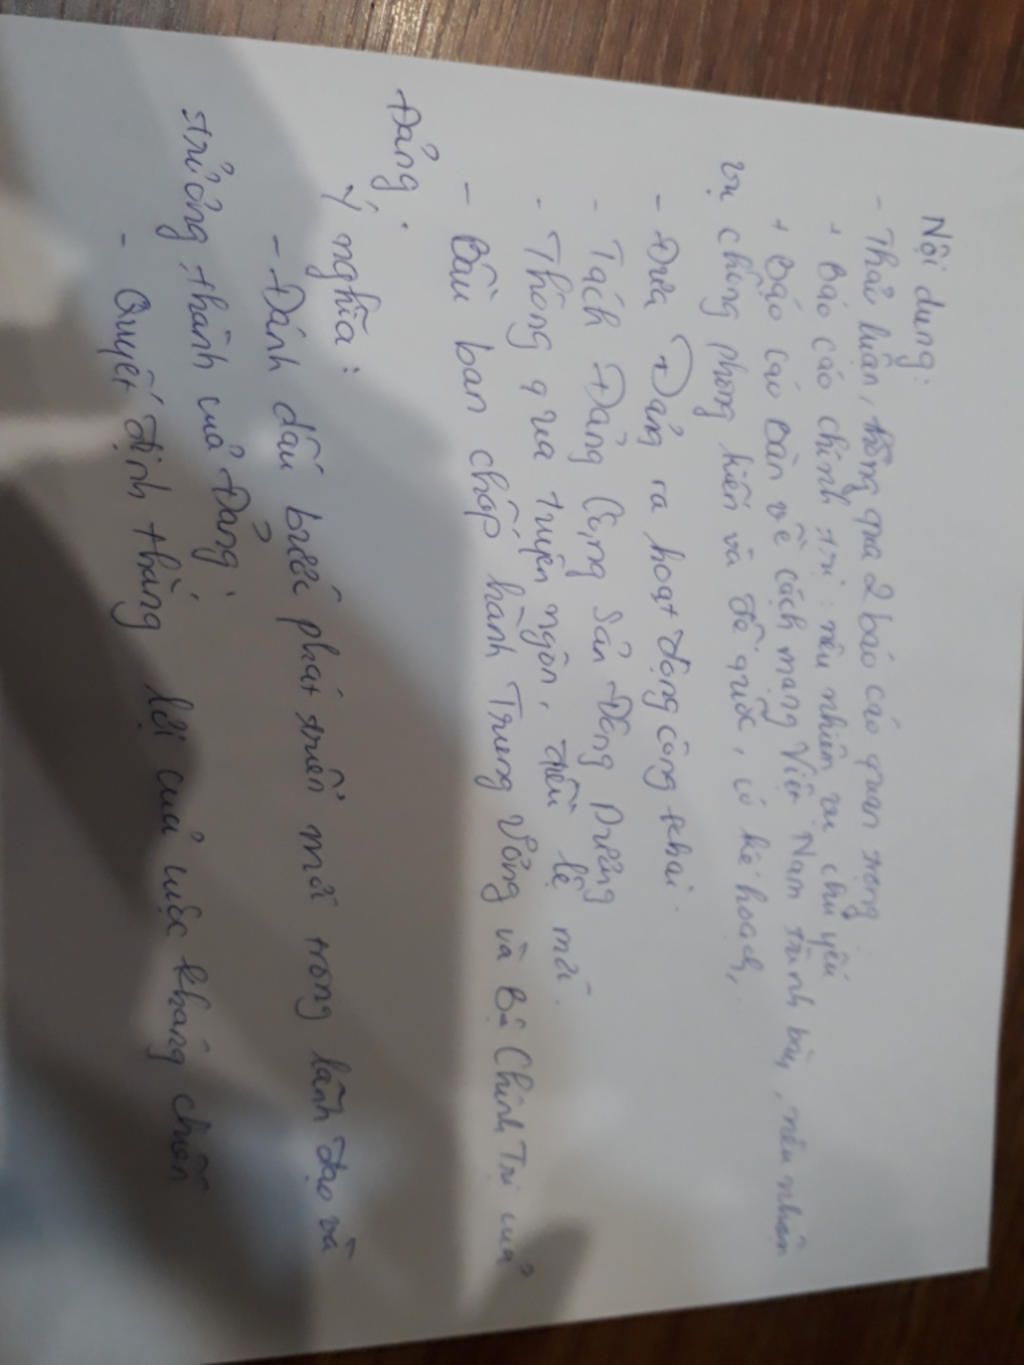 Nội dung:
- Thảo luận, thông qua 2 báo cáo quan trọng
+ Báo cáo chính trị: nêu nhiệm vụ chủ yếu
+ Báo cáo Bàn về cách mạng Việt Nam trình bày, nêu nhiệm
vụ chống phong kiến và đế quốc, có kế hoạch,
- Đưa Đảng ra hoạt động công khai.
- Tách Đảng Cộng Sản Đông Dương
- Thông qua tuyên ngôn, điều lệ mới.
- Bầu ban chấp hành Trung Ương và Bộ Chính Trị của
Đảng.
Ý nghĩa:
- Đánh dấu bước phát triển mới trong lãnh đạo và
trưởng thành của Đảng
- Quyết định thắng lợi của cuộc kháng chiến